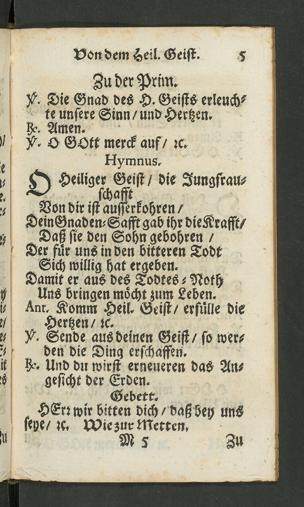 Von dem Heil. Geist. 5
Zu der Prim.
℣. Die Gnad des H. Geists erleuch-
te unsere Sinn / und Hertzen.
℟. Amen.
℣. O GOtt merck auf / ꝛc.
Hymnus.
O Heiliger Geist / die Jungfrau-
schafft
Von dir ist ausserkohren /
Dein Gnaden-Safft gab ihr die Krafft /
Daß sie den Sohn gebohren /
Der für uns in den bitteren Todt
Sich willig hat ergeben.
Damit er aus des Todtes-Noth
Uns bringen möcht zum Leben.
Ant. Komm Heil. Geist / erfülle die
Hertzen / ꝛc.
℣. Sende aus deinen Geist / so wer-
den die Ding erschaffen.
℟. Und du wirst erneueren das An-
gesicht der Erden.
Gebett.
HErr wir bitten dich / daß bey uns
seye / ꝛc. Wie zur Metten.
M 5 Zu